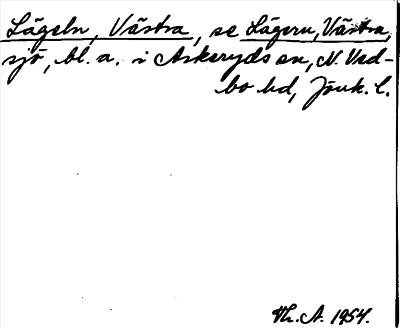 Lägeln, Västra, se Lägern, Västra,
sjö, bl. a. i Askeryds sn, N. Ved-
bo hd, Jönk. l.
Th. A. 1954.